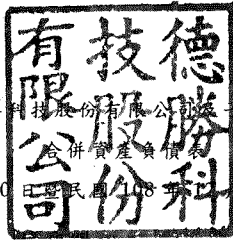 德勝科
技股份
有限公司
科技股份有限公司及
合併資產負債表
0日暨民國 108 年